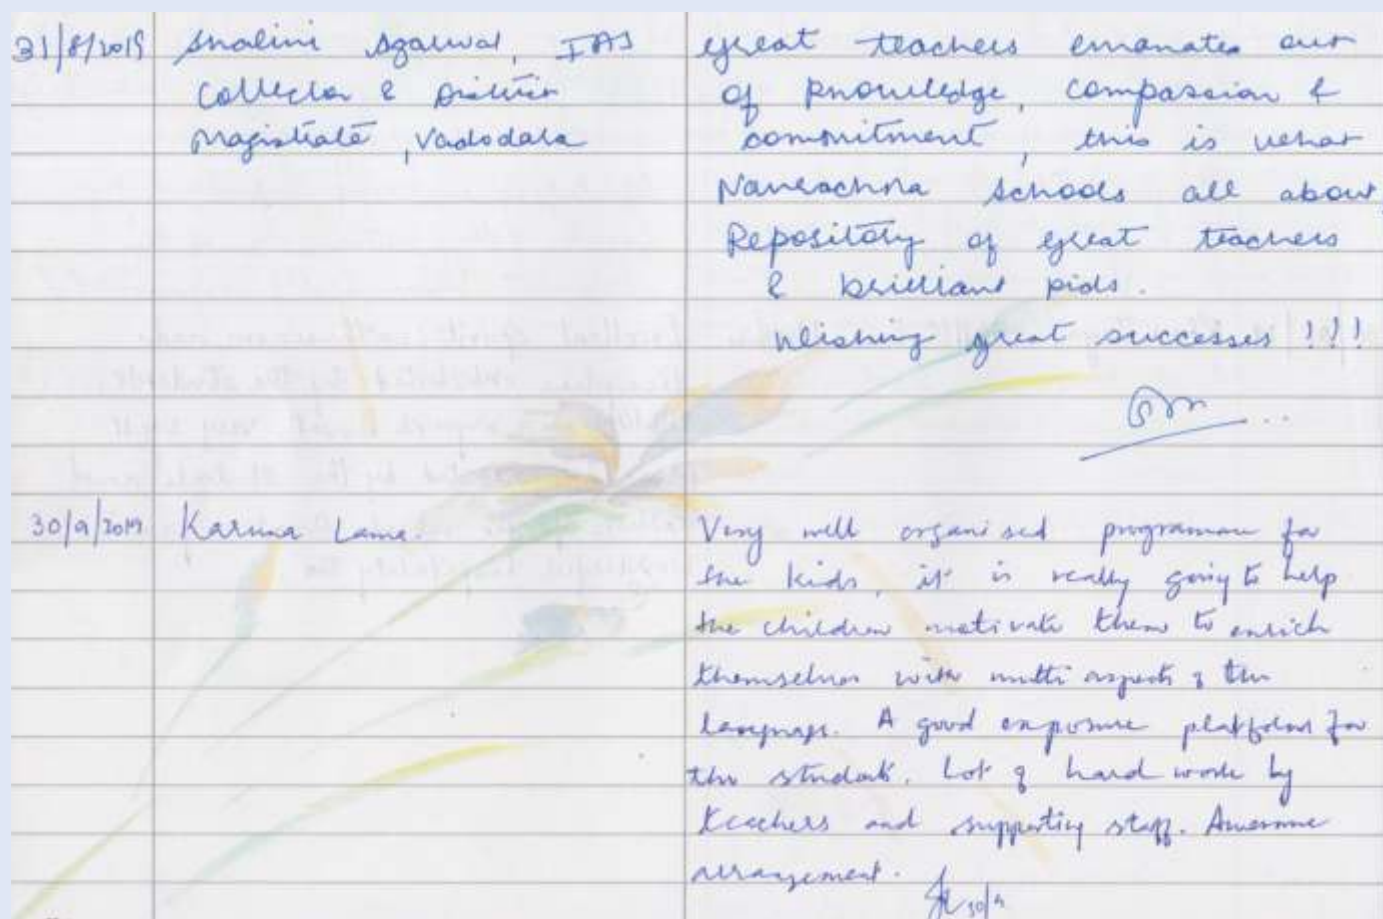 31/8/2019 Shalini Agarwal, IAS
Collector & District
Magistrate, Vadodara
Great teachers emanates out
of knowledge, compassion &
commitment, this is what
Navrachna schools all about.
Repository of great teachers
& brilliant kids.
Wishing great successes !!!
30/9/2019 Karuna Lama.
Very well organised programme for
the kids, it is really going to help
the children motivate them to enrich
themselves with multi aspects of the
language. A good exposure platform for
the students. Lot of hard work by
teachers and supporting staff. Awesome
arrangement.
30/9